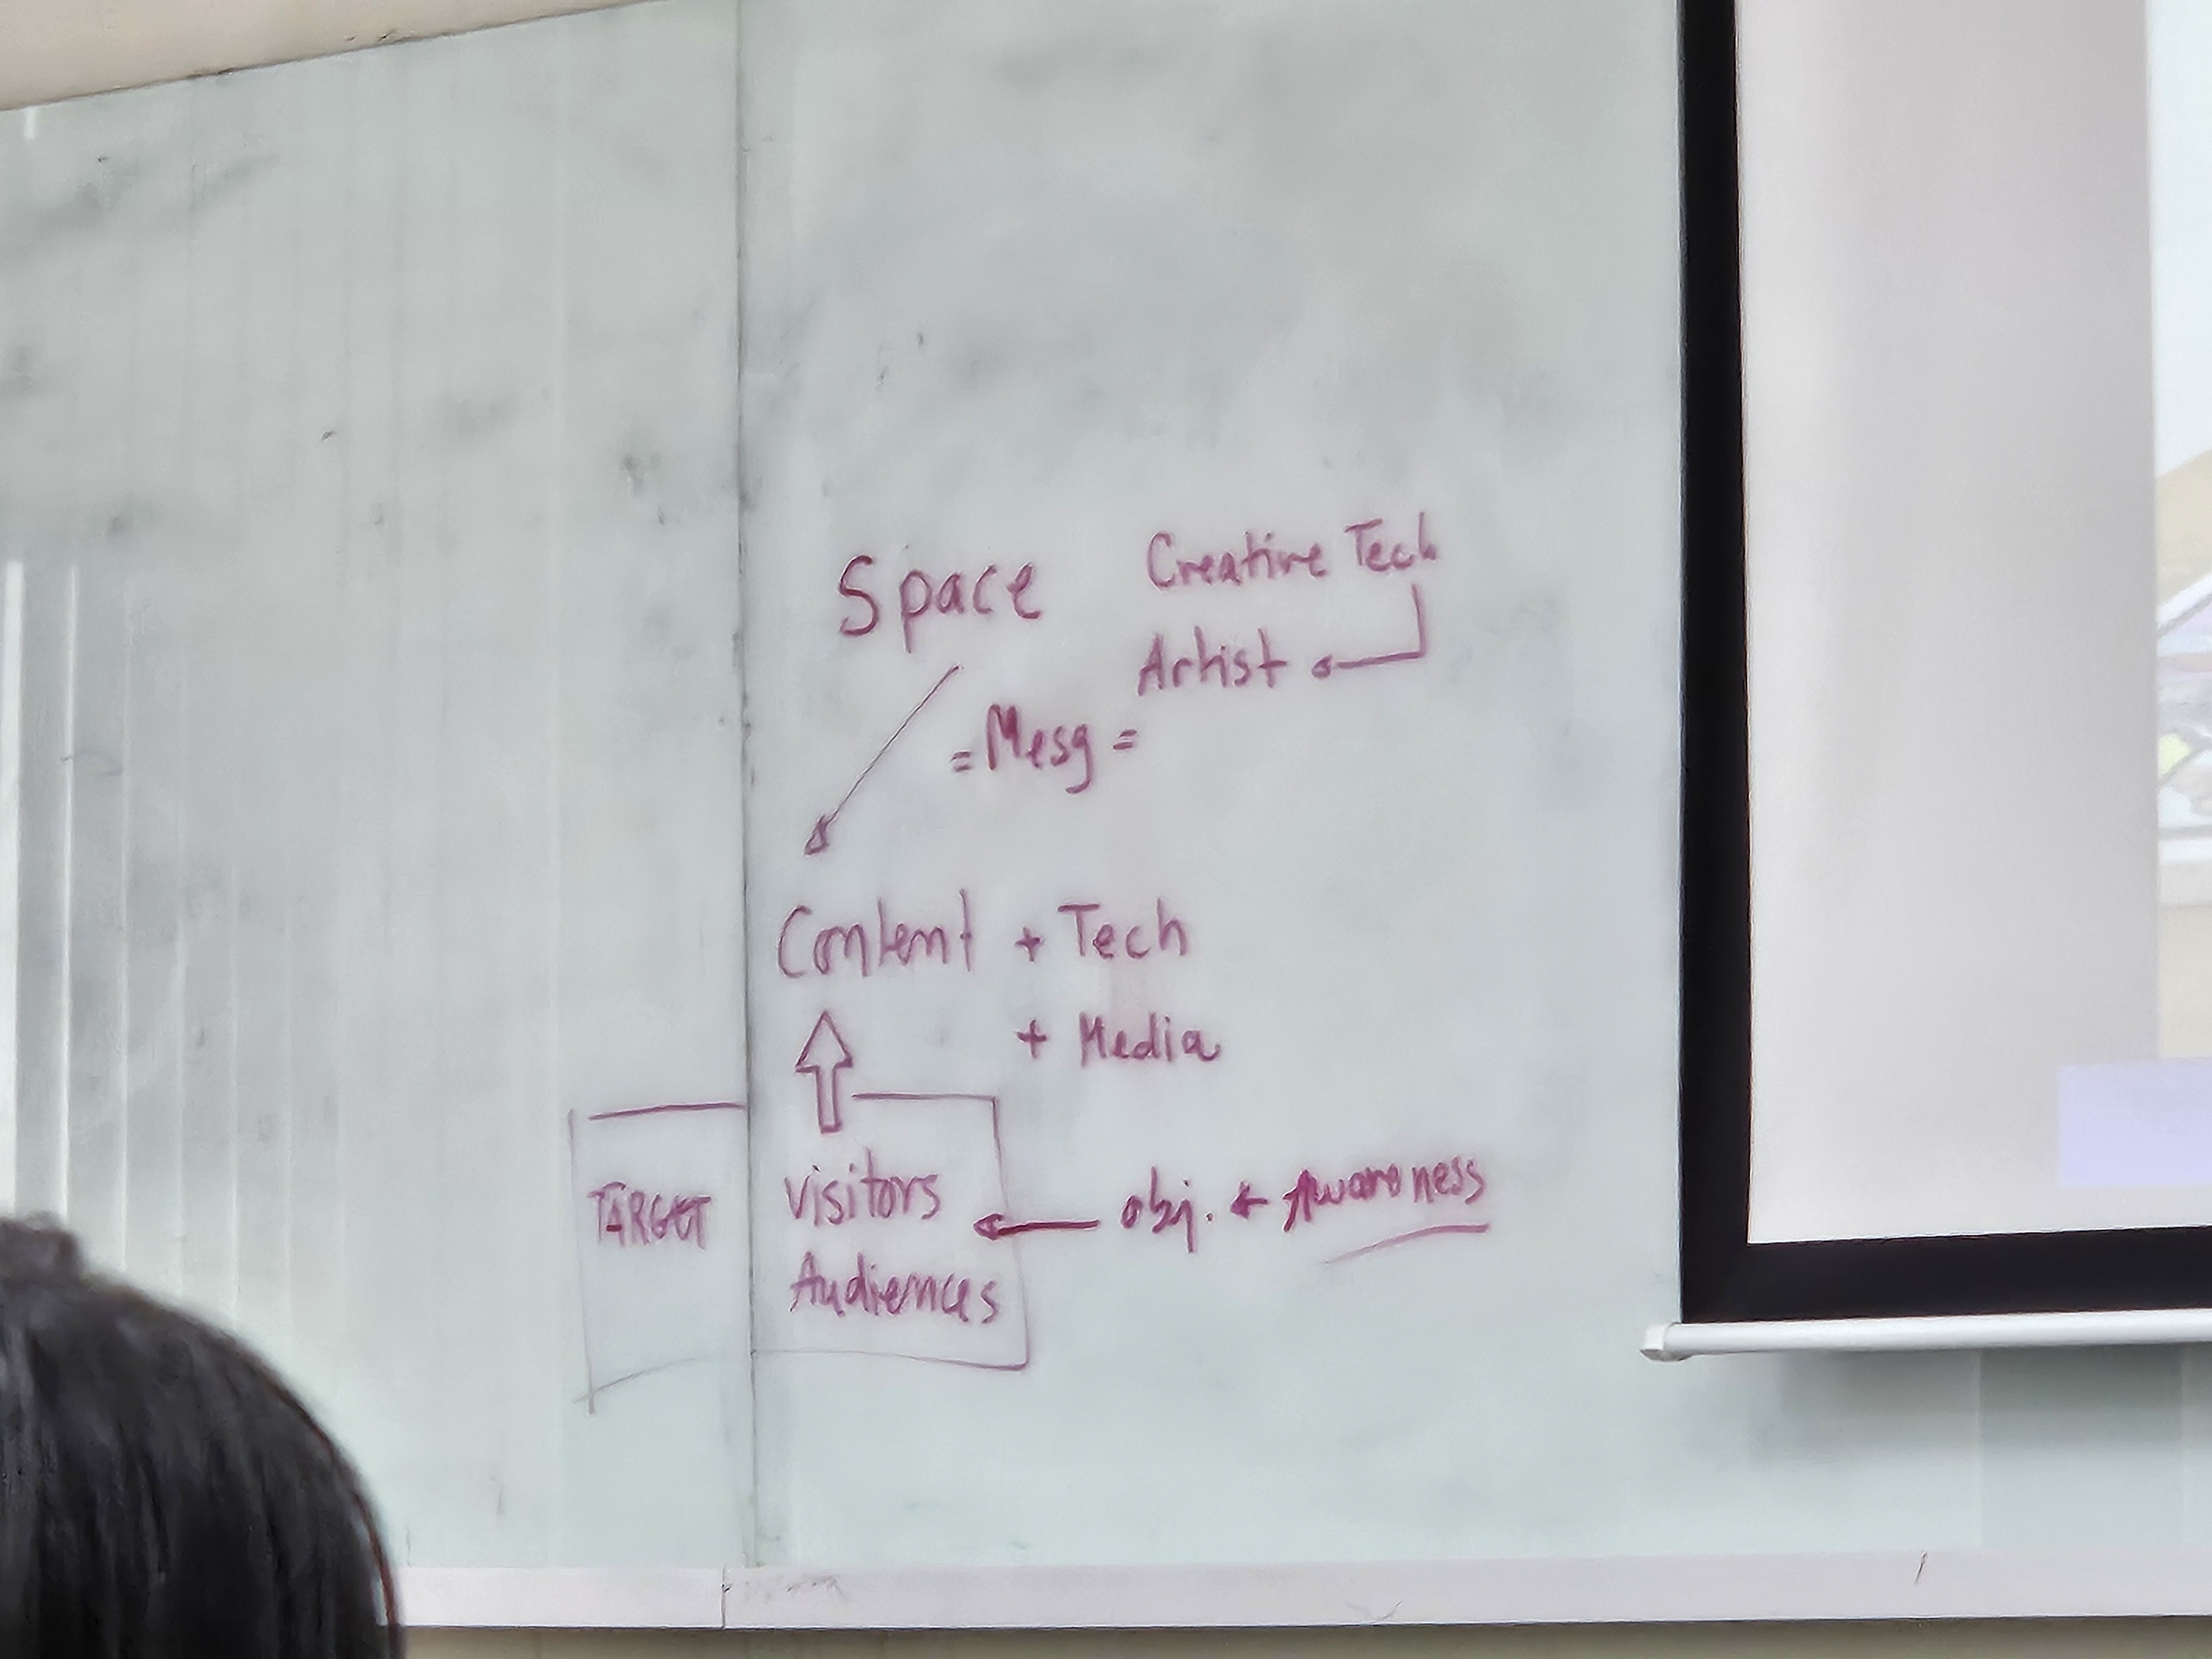 Space
Creative Tech
Artist
= Mesg =
Content + Tech
+ Media
TARGET
visitors
Audiences
obj. ← Awareness